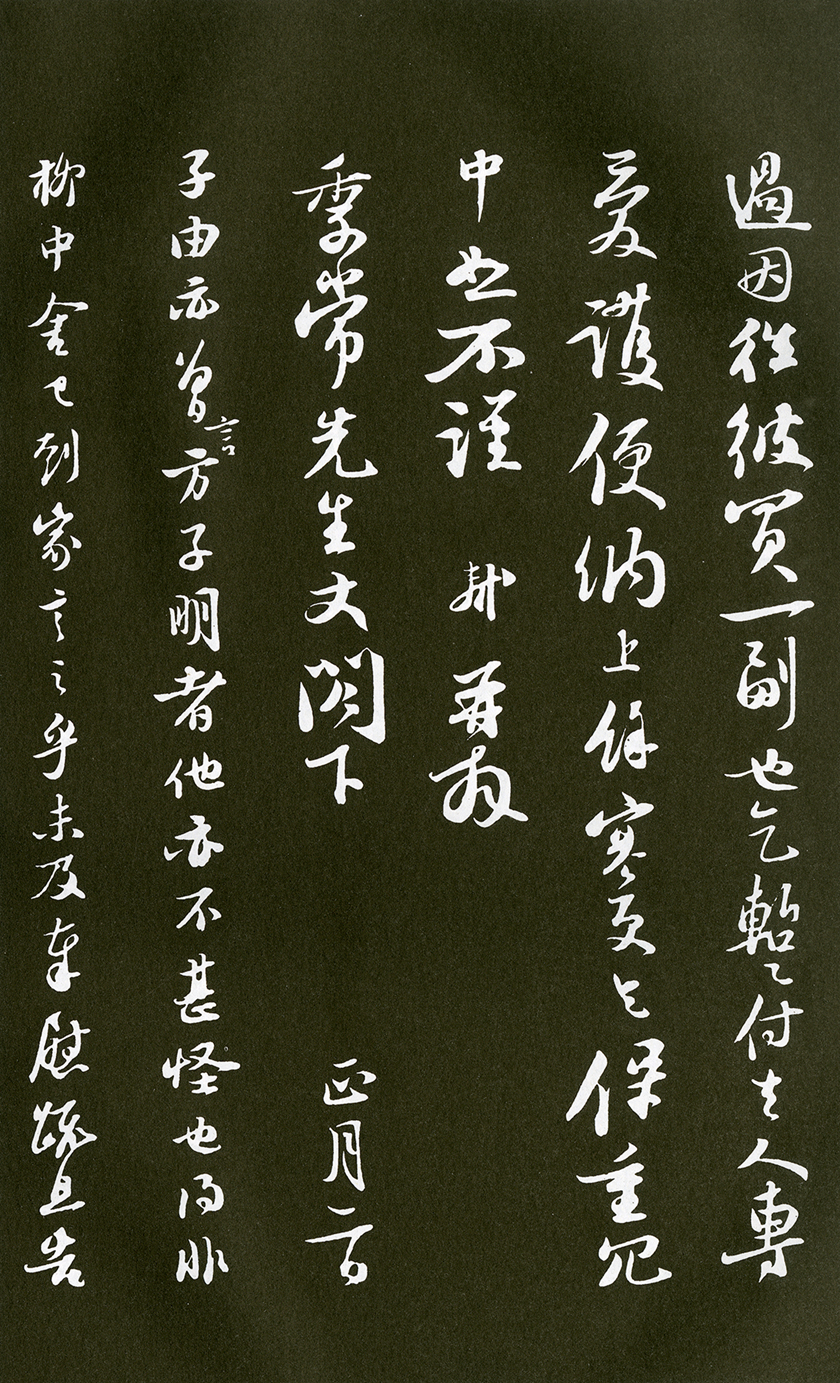 過因往彼買一副也乞暫付去人專
愛護便納上餘寒更乞保重冗
中恕不謹　軾再拜
季常先生丈閣下　正月二日
子由亦曾言方子明者他亦不甚怪也得非
柳中舍已到家言之乎未及奉慰疏且告